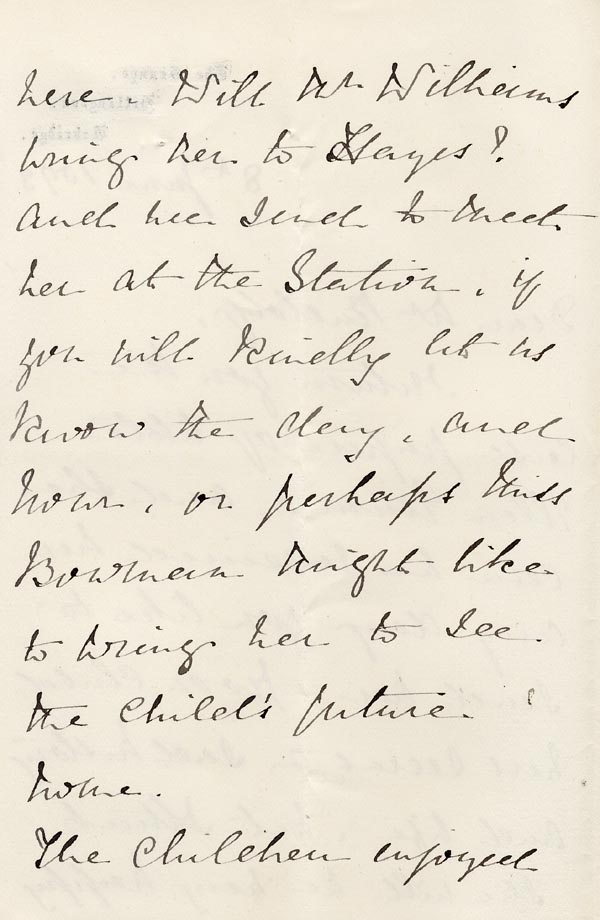 here. Will Mr Williams
bring her to Hayes?
and we send to meet
her at the Station, if
you will kindly let us
know the day, and
hour, or perhaps Miss
Bowman might like
to bring her to see
the child's future
home.
The children enjoyed